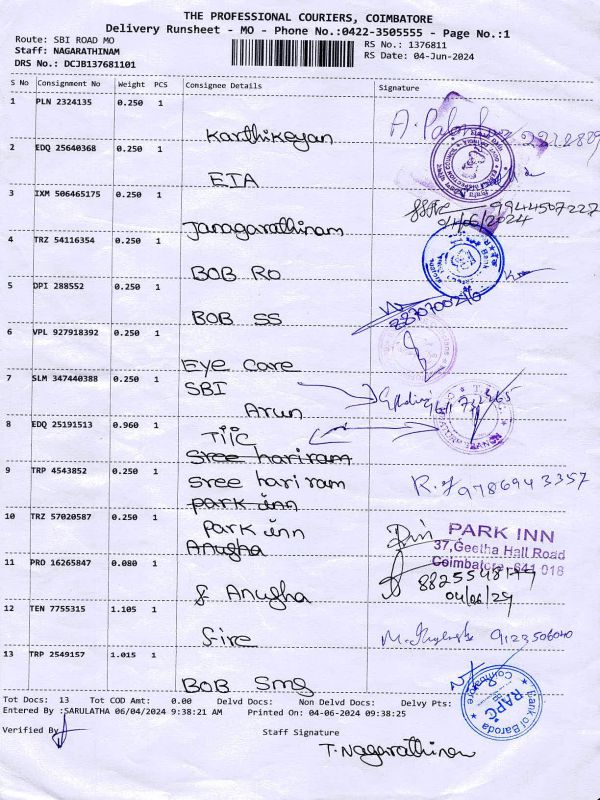 THE PROFESSIONAL COURIERS, COIMBATORE
Delivery Runsheet - MO - Phone No.:0422-3505555 - Page No.:1
Route: SBI ROAD MO
Staff: NAGARATHINAM
DRS No.: DCJB137681101
RS No.: 1376811
RS Date: 04-Jun-2024
S No Consignment No Weight PCS Consignee Details Signature
1 PLN 2324135 0.250 1
Karthikeyan
2 EDQ 25640368 0.250 1
EIA
3 IXM 506465175 0.250 1
9944507227
04/06/2024
Janagarathinam
4 TRZ 54116354 0.250 1
BOB RO
5 DPI 288552 0.250 1
BOB SS
6 VPL 927918392 0.250 1
Eye care
7 SLM 347440388 0.250 1 SBI
Arun
8 EDQ 25191513 0.960 1 TIIC
Sree hariram
9 TRP 4543852 0.250 1 Sree hariram
R. 9786943357
park inn
10 TRZ 57020587 0.250 1 Park inn
Anugha
PARK INN
37,Geetha Hall Road
Coimbatore-641 018
11 PRO 16265847 0.080 1
04/06/24
Anugha
12 TEN 7755315 1.105 1
9123506040
fire
13 TRP 2549157 1.015 1
BOB Smg
Bank of Baroda
RAPC
Coimbatore
Tot Docs: 13 Tot COD Amt: 0.00 Delvd Docs: Non Delvd Docs: Delvy Pts:
Entered By :SARULATHA 06/04/2024 9:38:21 AM Printed On: 04-06-2024 09:38:25
Verified By
Staff Signature
T. Nagarathinam